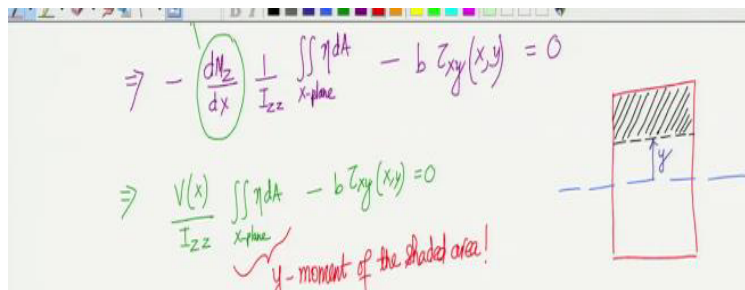 ⇒ - dMz/dx 1/Izz ∬x-plane η dA - b τxy(x,y) = 0
y
⇒ V(x)/Izz ∬x-plane η dA - b τxy(x,y) = 0
y-moment of the shaded area!